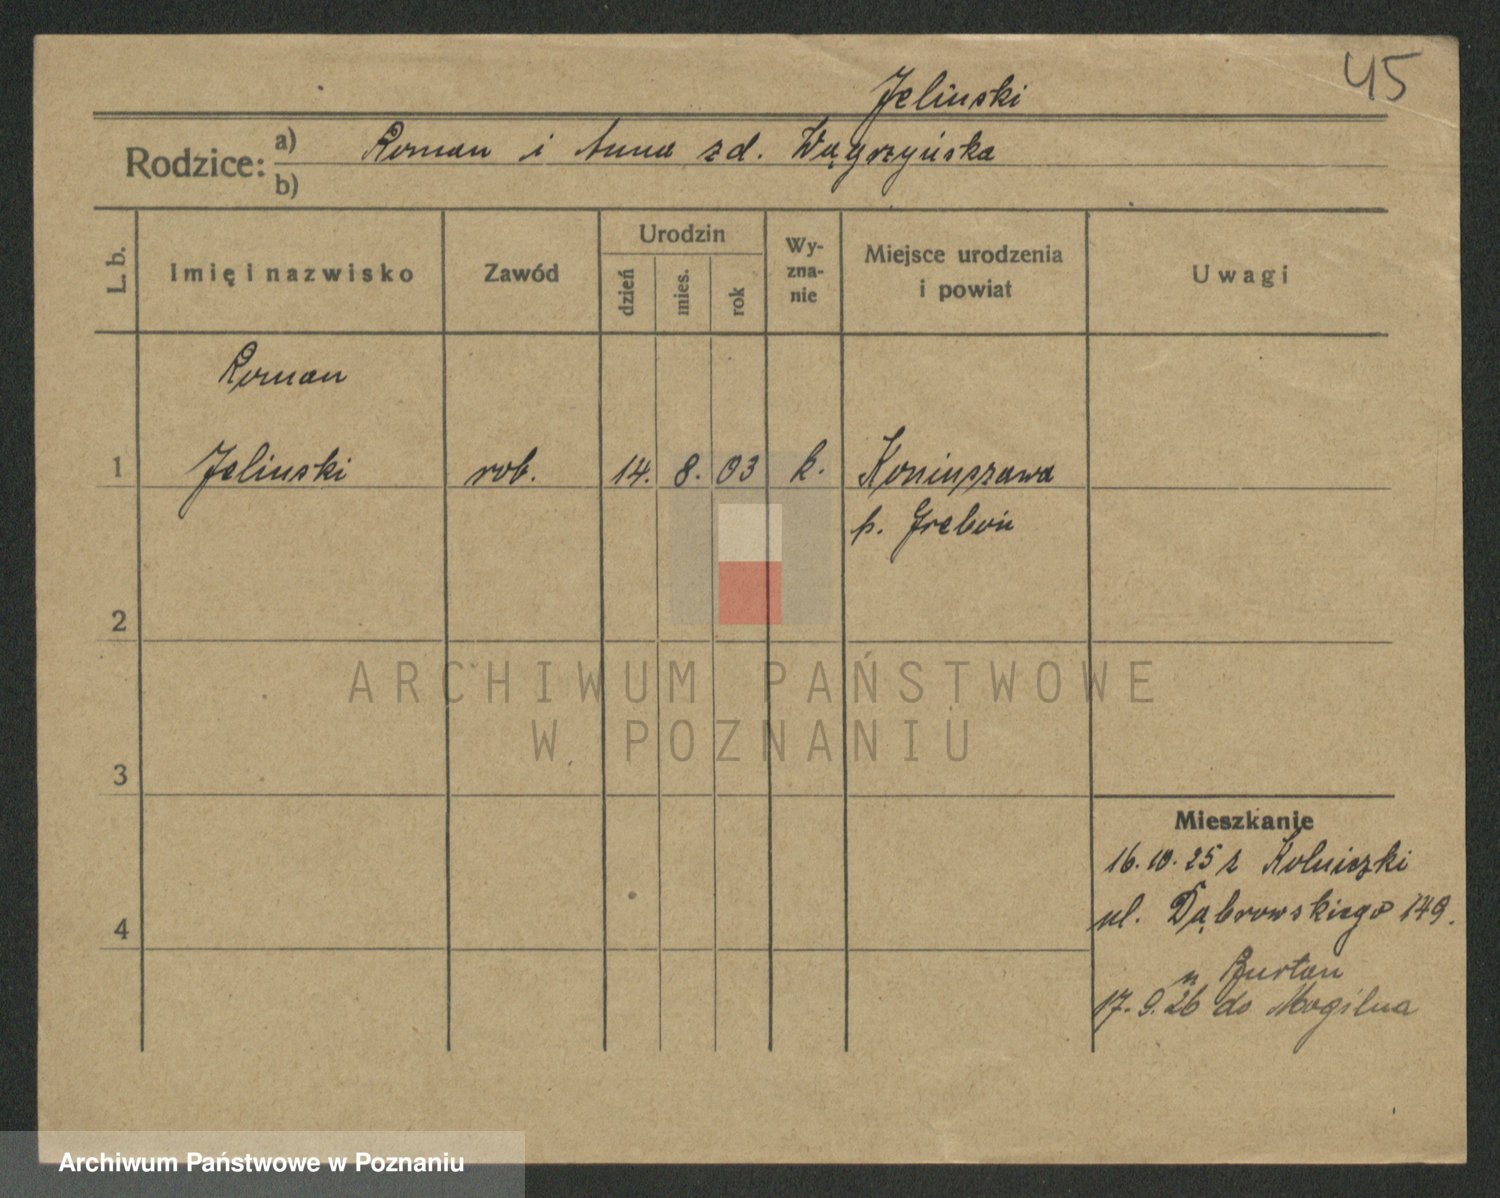 45
Jelinski
Rodzice: a) Roman i Anna zd. Wągrzyńska
b)
L. b.
Imię i nazwisko
Zawód
Urodzin
dzień
mies.
rok
Wy-
zna-
nie
Miejsce urodzenia
i powiat
Uwagi
Roman
1 Jelinski rob. 14. 8. 03 k.
p.
2
3
4
Mieszkanie
16.10.25 z
ul. Dąbrowskiego 149.
u
17.9.26 do Mogilna
ARCHIWUM PAŃSTWOWE
W POZNANIU
Archiwum Państwowe w Poznaniu